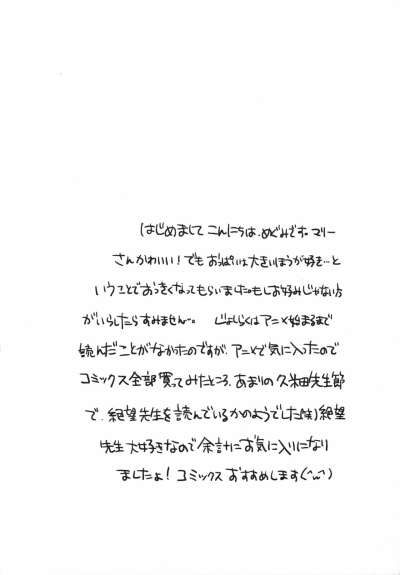 はじめまして こんにちは、めぐみです。マリー
さんかわいい！でもおっぱいは大きいほうが好き…と
いうことでおっきくなってもらいました。もしお好みじゃない方
がいらしたらすみません…。 じょしらくはアニメ始まるまで
読んだことがなかったのですが、アニメで気に入ったので
コミックス全部買ってみたところ、あまりの久米田先生節
で、絶望先生を読んでいるかのようでした(笑)絶望
先生大好きなので余計にお気に入りになり
ましたよ！コミックスおすすめします(^ω^)